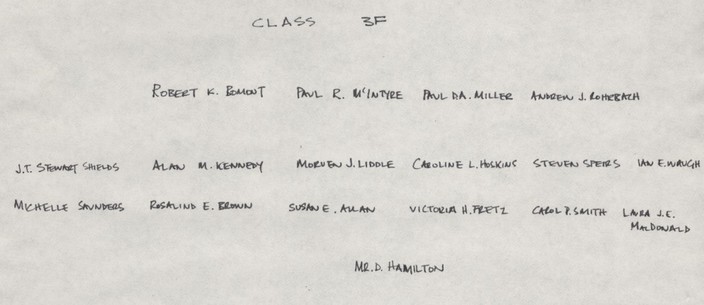 CLASS 3F
ROBERT K. BOMONT PAUL R. McINTYRE PAUL DA. MILLER ANDREW J. ROHRBACH
J.T. STEWART SHIELDS ALAN M. KENNEDY MORVEN J. LIDDLE CAROLINE L. HOSKING STEVEN SPEIRS IAN E. WAUGH
MICHELLE SAUNDERS ROSALIND E. BROWN SUSAN E. ALLAN VICTORIA H. PRETZ CAROL P. SMITH LAURA J.E.
MACDONALD
MR. D. HAMILTON